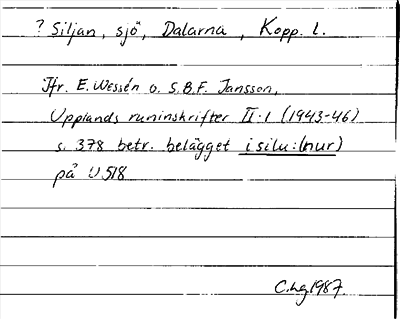 ? Siljan, sjö, Dalarna, Kopp. l.
Jfr. E. Wessén o. S.B.F. Jansson,
Upplands runinskrifter II:1 (1943-46)
s. 378 betr. belägget i silu:(nur)
på U 518
C.Lg 1987.